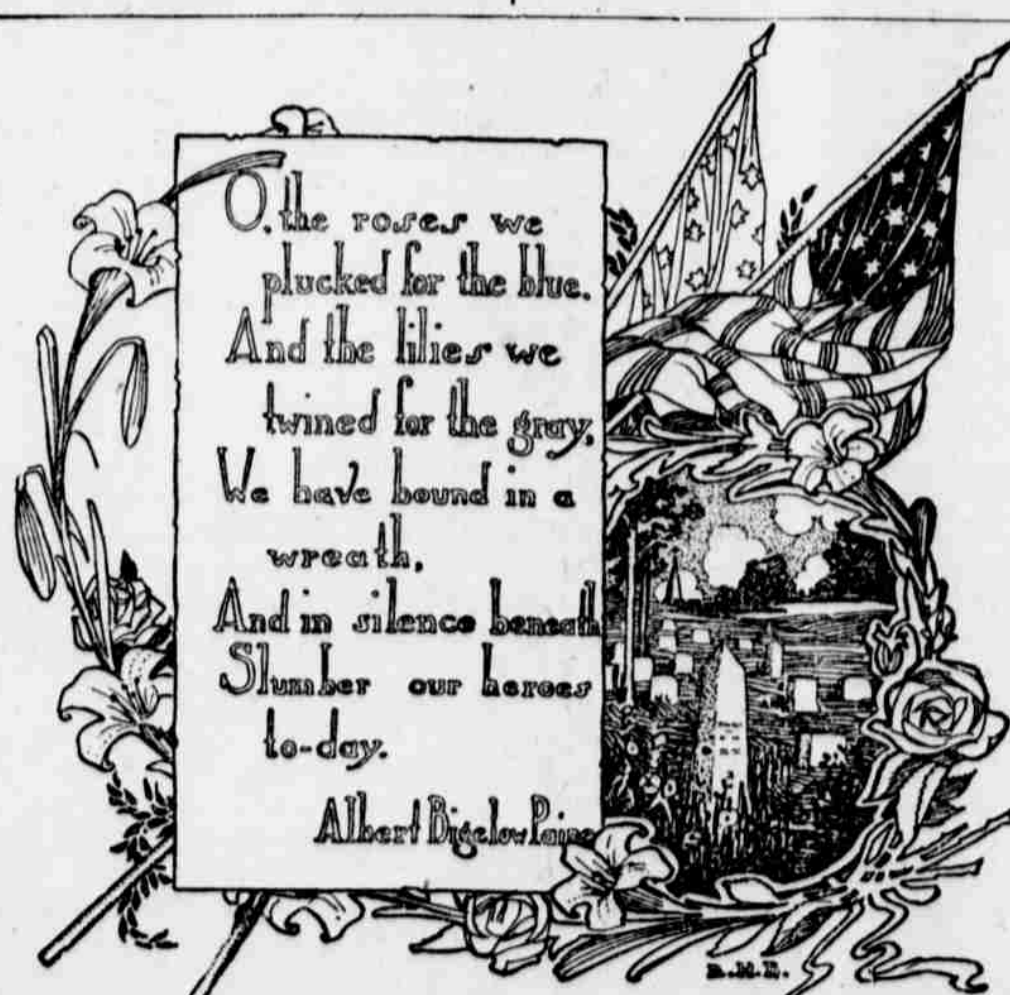 O, the roses we
plucked for the blue,
And the lilies we
twined for the gray,
We have bound in a
wreath,
And in silence beneath
Slumber our heroes
to-day.
Albert Bigelow Paine